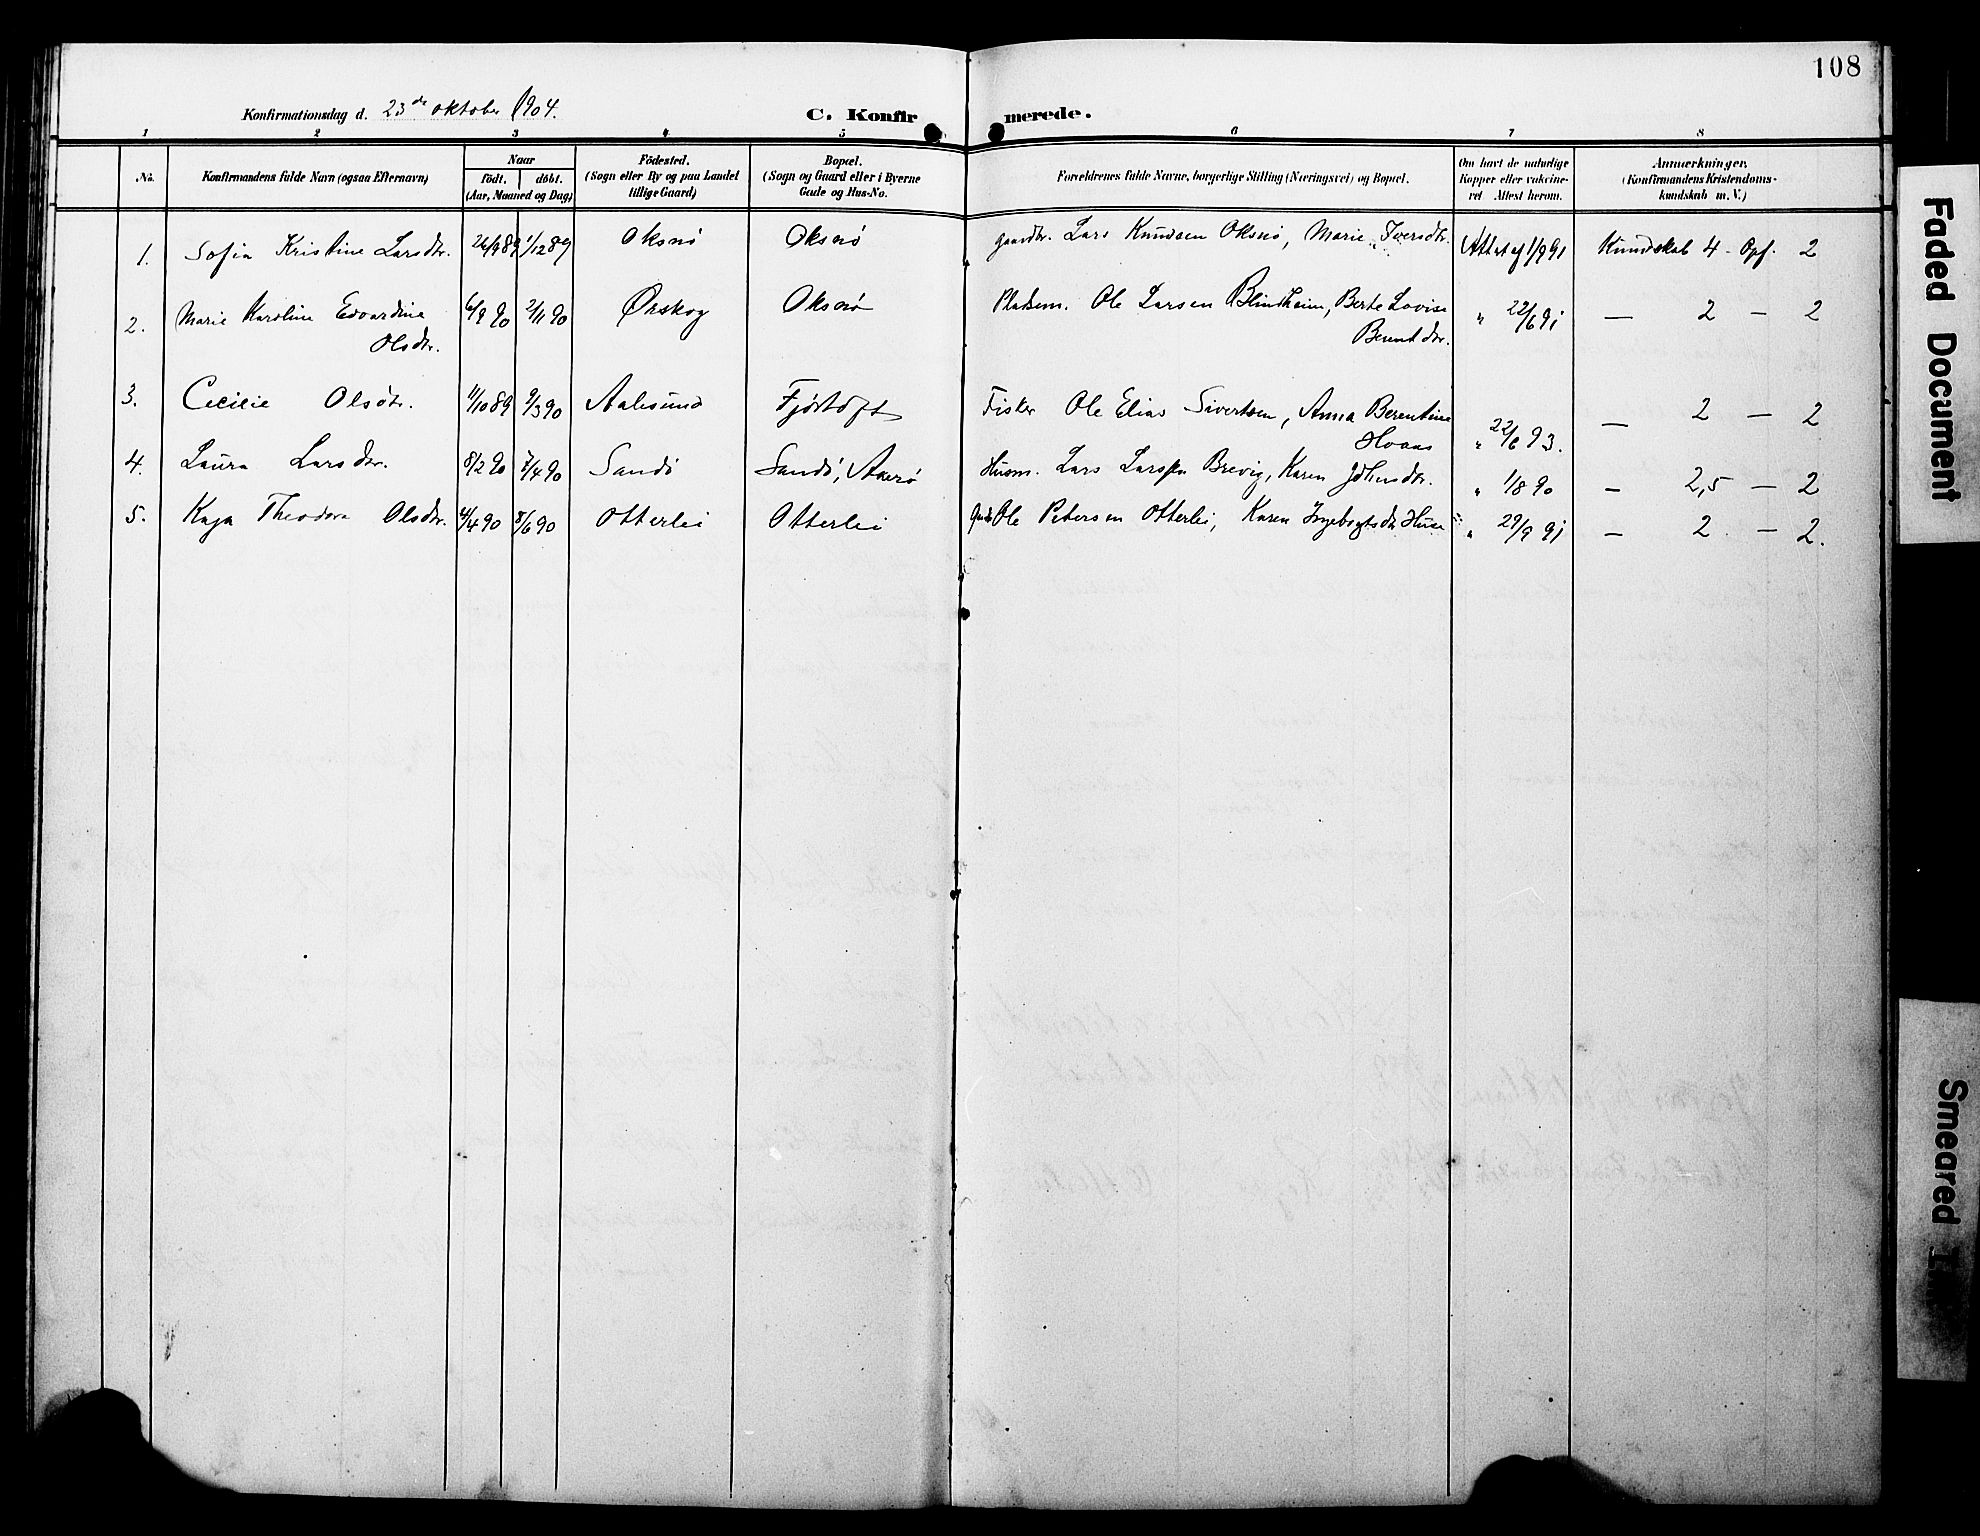 108
Konfirmationsdag d. 23de oktober 1904.
C. Konfirmerede.
1 2 3 4 5 6 7 8
No. Konfirmandens fulde Navn (ogsaa Efternavn) Naar født. døbt. (Aar, Maaned og Dag) Fødested. (Sogn eller By og paa Landet tillige Gaard) Bopæl. (Sogn og Gaard eller i Byerne Gade og Hus-No. Forældrenes fulde Navne, borgerlige Stilling (Næringsvei) og Bopæl. Om havt de naturlige Kopper eller vakcineret Attest herom. Anmærkninger. (Konfirmandens Kristendomskundskab m. V.)
1. Sofia Kristine Larsdtr. 26/9 89 1/12 89 Oksnø Oksnø gaardbr. Lars Knudsen Oksnø, Marie Iversdtr. Attest af 1/9 91 Kundskab 4 - Opf. 2
2. Marie Karoline Edvardine 6/9 90 2/11 90 Ørskog Oksnø Pladsm. Ole Larsen Blindheim, Berte Lovise " 22/6 91 — 2 — 2
Olsdtr. Berntdtr.
3. Cecilie Olsdtr. 11/10 89 9/3 90 Aalesund Fjørtoft Fisker Ole Elias Sivertsen, Anna Berentine — 2 — 2
Hoaas " 22/6 93.
4. Laura Larsdtr. 8/2 90 7/4 90 Sandø Sandø, Aaerø Husm. Lars Larsen Brevig, Karen Johnsdtr. " 1/8 90 — 2,5 — 2
5. Kaja Theodora Olsdtr. 4/4 90 8/6 90 Otterlei Otterlei Ole Petersen Otterlei, Karen Ingebrigtsdtr Huse " 29/9 91 — 2. — 2.
Faded Document
Smeared